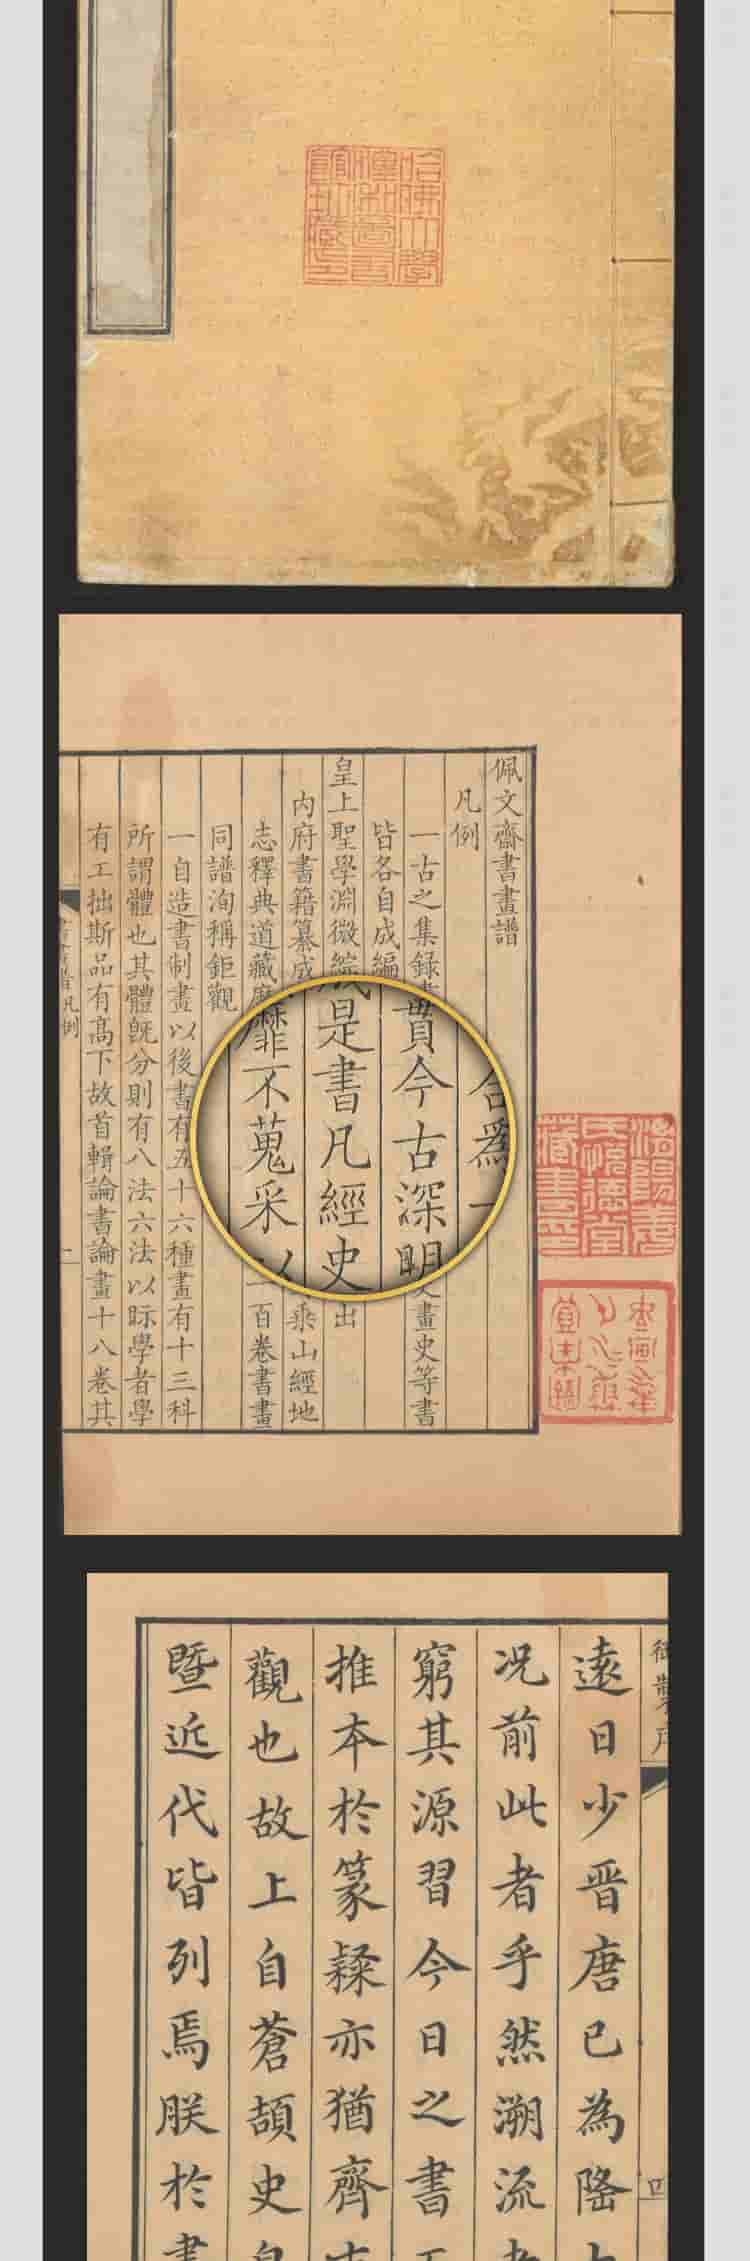 哈佛大學
漢和圖書
館珍藏印
佩文齋書畫譜
凡例
一古之集録
史畫史等書
皆各自成編
合為一
皇上聖學淵微綜
貫今古深明
出
内府書籍纂成
是書凡經史
乘山經地
志釋典道藏
靡不蒐采以
百卷書畫
同譜洵稱鉅觀
一自造書制畫以後書有五十六種畫有十三科
所謂體也其體既分則有八法六法以眎學者學
有工拙斯品有高下故首輯論書論畫十八卷其
凡例
御製序
四
遠日少晉唐已為隆
况前此者乎然溯流
窮其源習今日之書
推本於篆隸亦猶齊
觀也故上自蒼頡史
暨近代皆列焉朕於書